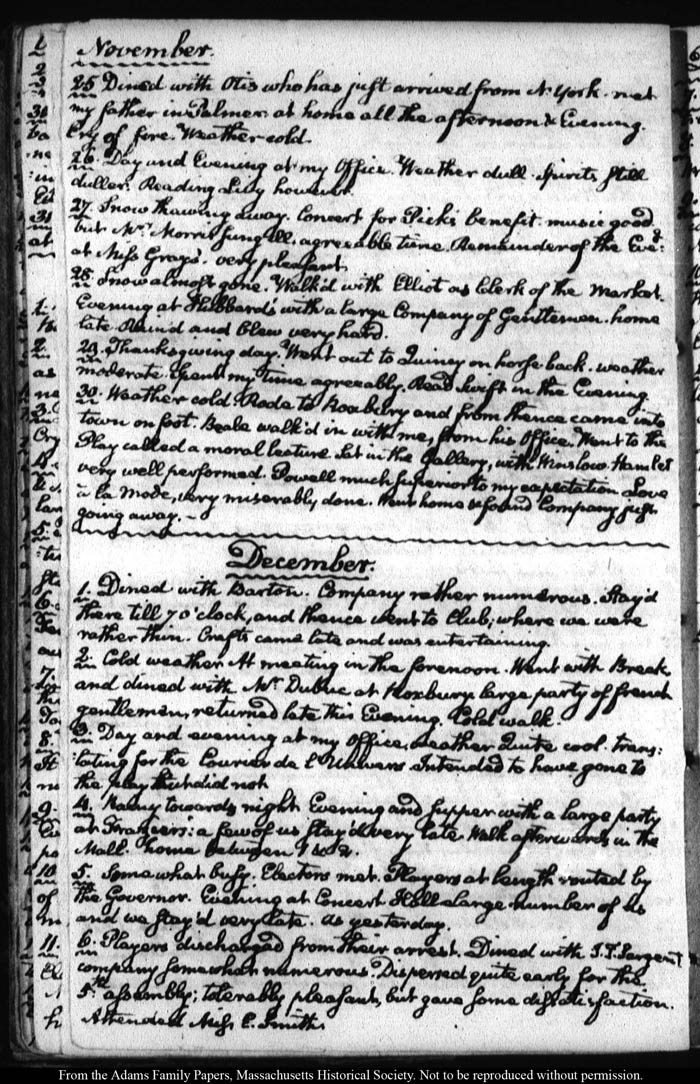 November.
25 Dined with Otis who has just arrived from N. York. met
my father in Palmer. at home all the afternoon & Evening.
Cry of fire. Weather cold.
26. Day and Evening at my Office. Weather dull. Spirits still
duller. Reading Livy however.
27. Snow thawing away. Concert for Pick's benefit. music good
but Mrs. Morris sung ill. agreeable time. Remainder of the Eveg:
at Miss Grays. very pleasant.
28. Snow almost gone. Walk'd with Elliot as Clerk of the Market.
Evening at Hubbard's with a large Company of Gentlemen. home
late. Rain'd and blew very hard.
29. Thanksgiving day. Went out to Quincy on horse-back. weather
moderate. Spent my time agreeably. Read Swift in the Evening
30. Weather cold. Rode to Roxbury and from thence came into
town on foot. Beale walk'd in with me, from his Office. Went to the
Play called a moral lecture. Sat in the Gallery, with Winslow. Hamlet
very well performed. Powell much superior to my expectation. Love
a la mode, very miserably done. Went home & found Company just
going away.
December.
1. Dined with Barton. Company rather numerous. Stay'd
there till 7 o'clock, and thence went to Club; where we were
rather thin. Crafts came late and was entertaining.
2. Cold weather. At meeting in the forenoon. Went with Breck
and dined with Mr. Dubuc at Roxbury. large party of french
gentlemen, returned late this Evening. Cold walk.
3. Day and evening at my Office, weather quite cool. trans:
lating for the Courier de l'Univers. Intended to have gone to
the play but did not
4. Rainy towards night. Evening and supper with a large party
at Fraziers: a few of us stay'd very late. Walk afterwards in the
Mall. home between 1 & 2.
5. Somewhat busy. Electors met. Players at length routed by
the Governor. Evening at Concert Hall. large number of us
and we stay'd very late. as yesterday.
6. Players discharged from their arrest. Dined with J.T. Sargent
company somewhat numerous. Dispersed quite early for the
5th. assembly: tolerably pleasant, but gave some dissatisfaction.
Attended Miss E. Smith.
From the Adams Family Papers, Massachusetts Historical Society. Not to be reproduced without permission.